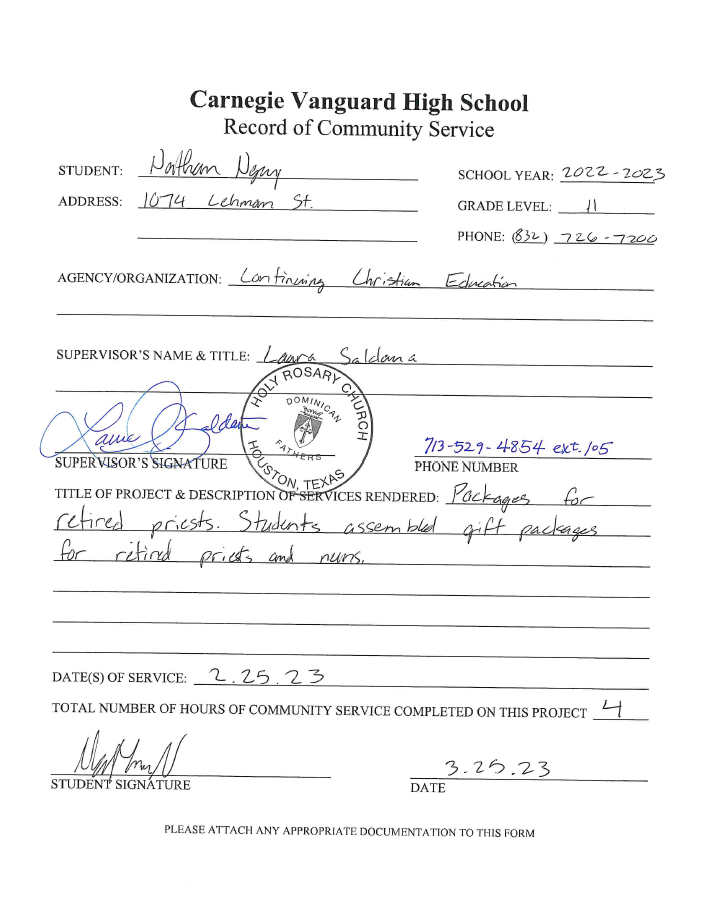 Carnegie Vanguard High School
Record of Community Service
STUDENT: Nathan
SCHOOL YEAR: 2022-2023
ADDRESS: 1074 Lehman St.
GRADE LEVEL: 11
PHONE: (832) 726-7200
AGENCY/ORGANIZATION: Continuing Christian Education
SUPERVISOR'S NAME & TITLE: Laura Saldana
HOLY ROSARY CHURCH
DOMINICAN
FATHERS
HOUSTON, TEXAS
Saldana
713-529-4854 ext.105
SUPERVISOR'S SIGNATURE
PHONE NUMBER
TITLE OF PROJECT & DESCRIPTION OF SERVICES RENDERED: Packages for
retired priests. Students assembled gift packages
for retired priests and nuns.
DATE(S) OF SERVICE: 2.25.23
TOTAL NUMBER OF HOURS OF COMMUNITY SERVICE COMPLETED ON THIS PROJECT 4
3.25.23
STUDENT SIGNATURE
DATE
PLEASE ATTACH ANY APPROPRIATE DOCUMENTATION TO THIS FORM